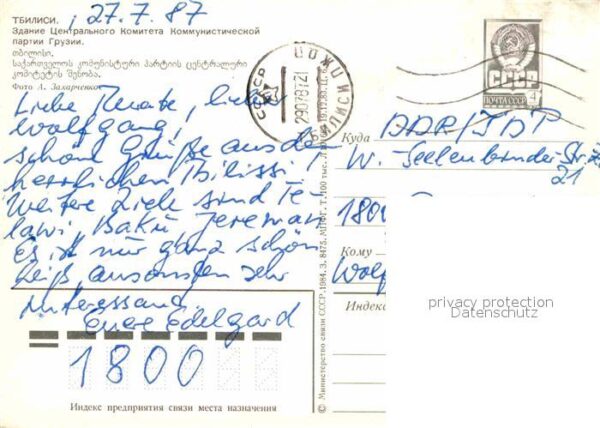 ТБИЛИСИ. ; 27.7.87
Здание Центрального Комитета Коммунистической
партии Грузии.
თბილისი.
საქართველოს კომუნისტური პარტიის ცენტრალური
კომიტეტის შენობა.
Фото А. Захарченко
Liebe Renate, lieber
Wolfgang,
schöne Grüße aus de-
herrlichen Tbilissi!
Weitere Ziele sind Te-
lawi, Baku, Jerewan
Es ist nur ganz schön
heiß, ansonsten sehr
interessand.
Eure Edelgard
1800
Индекс предприятия связи места назначения
© Министерство связи СССР. 1984. З. 8475. МПФГ. Т. 100 тыс.
СССР
29078721
ТБИЛИСИ
ПОЧТА СССР
4
Куда DDR/DDP
W. Seelenbinder-Str.
21
180
Кому
Wolf
Индекс
privacy protection
Datenschutz